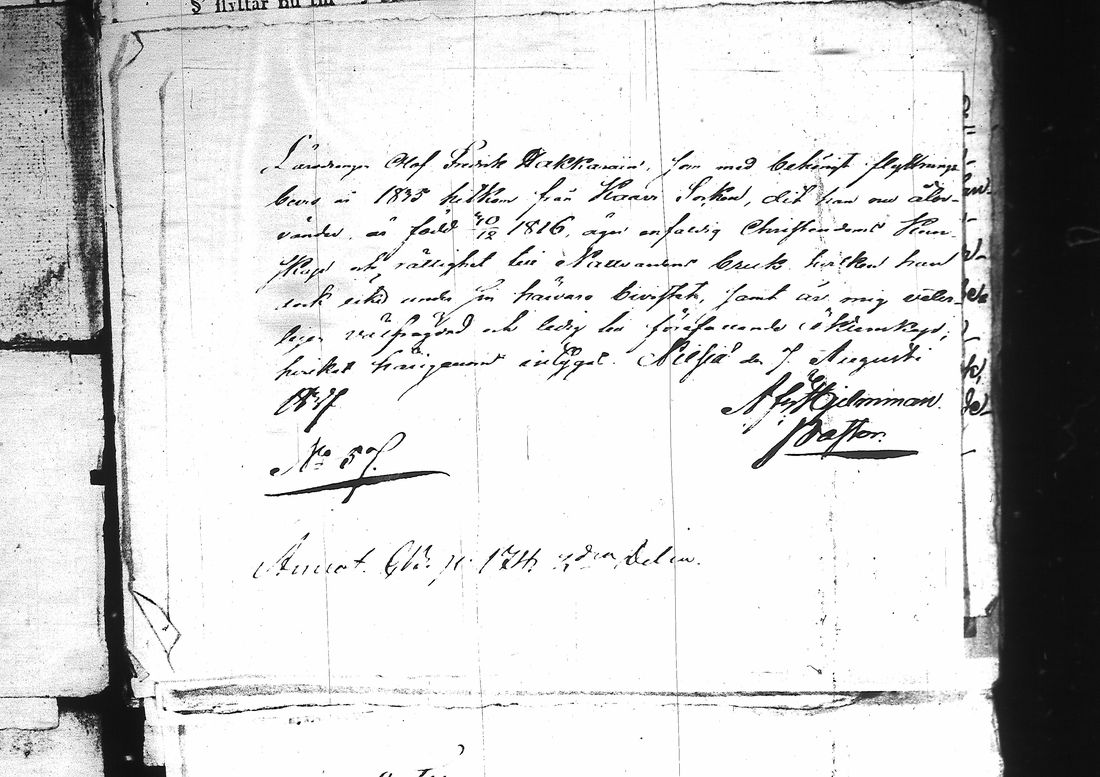 § Flyttar nu till
Lärodrängen Olof Fredrik Hakkarainen, som med behörigt flyttnings-
bevis år 1835 hitkom från Kaavi Socken, dit han nu åter-
vänder, är född 30/12 1816, äger enfaldig Christendoms Kun-
skap och rättighet till Nattvardens bruk hvilken han
ock under sin härvaro samt är mig veter-
ligen välfrägdad och ledig till förefallande äktenskap,
hvilket härigenom intygas. Nilsiä den 7. Augusti
1837
Hjelmman.
Pastor.
No 57.
Annot. p. 174 2dra Delen.